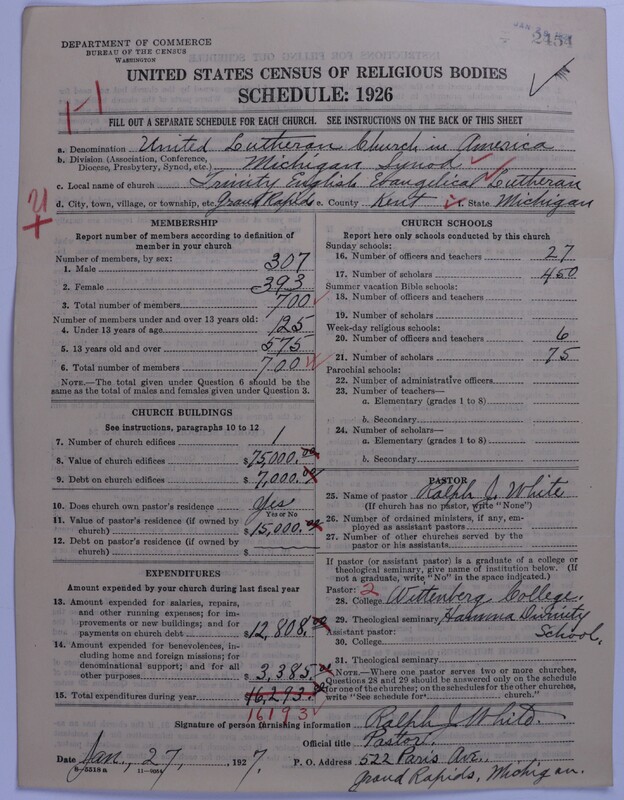 DEPARTMENT OF COMMERCE
BUREAU OF THE CENSUS
WASHINGTON
2454
UNITED STATES CENSUS OF RELIGIOUS BODIES
SCHEDULE: 1926
1-1
FILL OUT A SEPARATE SCHEDULE FOR EACH CHURCH. SEE INSTRUCTIONS ON THE BACK OF THIS SHEET
a. Denomination United Lutheran Church in America
b. Division (Association, Conference, Diocese, Presbytery, Synod, etc.) Michigan Synod
c. Local name of church Trinity English Evangelical Lutheran
d. City, town, village, or township, etc. Grand Rapids e. County Kent f. State Michigan
MEMBERSHIP
Report number of members according to definition of member in your church
Number of members, by sex:
1. Male 307
2. Female 393
3. Total number of members 700
Number of members under and over 13 years old:
4. Under 13 years of age 125
5. 13 years old and over 575
6. Total number of members 700
NOTE.—The total given under Question 6 should be the same as the total of males and females given under Question 3.
CHURCH BUILDINGS
See instructions, paragraphs 10 to 12
7. Number of church edifices 1
8. Value of church edifices $75,000.00
9. Debt on church edifices $7,000.00
10. Does church own pastor's residence Yes
Yes or No
11. Value of pastor's residence (if owned by church) $15,000.00
12. Debt on pastor's residence (if owned by church) $
EXPENDITURES
Amount expended by your church during last fiscal year
13. Amount expended for salaries, repairs, and other running expenses; for improvements or new buildings; and for payments on church debt $12,808.00
14. Amount expended for benevolences, including home and foreign missions; for denominational support; and for all other purposes $3,385.00
15. Total expenditures during year 16,293.00
16193
CHURCH SCHOOLS
Report here only schools conducted by this church
Sunday schools:
16. Number of officers and teachers 27
17. Number of scholars 450
Summer vacation Bible schools:
18. Number of officers and teachers
19. Number of scholars
Week-day religious schools:
20. Number of officers and teachers 6
21. Number of scholars 75
Parochial schools:
22. Number of administrative officers
23. Number of teachers—
a. Elementary (grades 1 to 8)
b. Secondary
24. Number of scholars—
a. Elementary (grades 1 to 8)
b. Secondary
PASTOR
25. Name of pastor Ralph J. White
(If church has no pastor, write "None")
26. Number of ordained ministers, if any, employed as assistant pastors
27. Number of other churches served by the pastor or his assistants
If pastor (or assistant pastor) is a graduate of a college or theological seminary, give name of institution below. (If not a graduate, write "No" in the space indicated.)
Pastor: 2
28. College Wittenberg College.
29. Theological seminary Hamma Divinity School.
Assistant pastor:
30. College
31. Theological seminary
NOTE.—Where one pastor serves two or more churches, Questions 28 and 29 should be answered only on the schedule for one of the churches; on the schedules for the other churches, write "See schedule for church."
Signature of person furnishing information Ralph J. White.
Official title Pastor.
Date Jan. 27, 1927. P. O. Address 522 Paris Ave.
Grand Rapids, Michigan.
8-5518a 11-9054